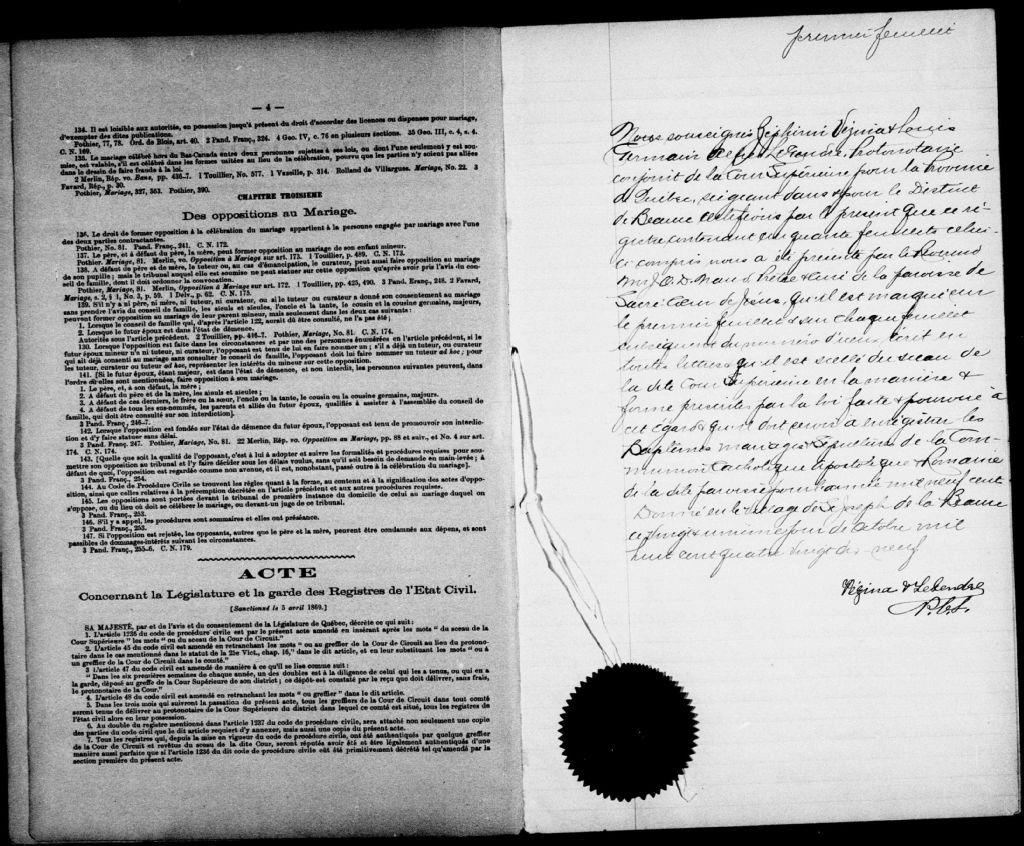 — 4 —
134. Il est loisible aux autorités, en possession jusqu'à présent du droit d'accorder des licences ou dispenses pour mariage,
d'exempter des dites publications.
Pothier, 77, 78. Ord. de Blois, art. 40. 2 Pand. Franç., 324. 4 Geo. IV, c. 76 en plusieurs sections. 35 Geo. III, c. 4, s. 4.
C. N. 169.
135. Le mariage célébré hors du Bas-Canada entre deux personnes sujettes à ses lois, ou dont l'une seulement y est sou-
mise, est valable, s'il est célébré dans les formes usitées au lieu de la célébration, pourvu que les parties n'y soient pas allées
dans le dessein de faire fraude à la loi.
2 Merlin, Rép. vo. Bans, pp. 416-7. 1 Touillier, No. 577. 1 Vazeille, p. 314. Rolland de Villargues. Mariage, No. 22. 3
Favard, Rép., p. 30.
Pothier, Mariage, 327, 363. Pothier, 390.
CHAPITRE TROISIEME
Des oppositions au Mariage.
136. Le droit de former opposition à la célébration du mariage appartient à la personne engagée par mariage avec l'une
des deux parties contractantes.
Pothier, No. 81. Pand. Franç., 241. C. N. 172.
137. Le père, et à défaut du père, la mère, peut former opposition au mariage de son enfant mineur.
Pothier, Mariage, 81. Merlin, vo. Opposition à Mariage sur art. 173. 1 Touillier, p. 489. C. N. 173.
138. A défaut du père et de mère, le tuteur ou, au cas d'émancipation, le curateur, peut aussi faire opposition au mariage
de son pupille; mais le tribunal auquel elle est soumise ne peut statuer sur cette opposition qu'après avoir pris l'avis du con-
seil de famille, dont il doit ordonner la convocation.
Pothier, Mariage, 81. Merlin, Opposition à Mariage sur art. 172. 1 Touillier, pp. 425, 490. 3 Pand. Franç., 248. 2 Favard,
Mariage, s. 2, § 1, No. 3, p. 59. 1 Delv., p. 62. C. N. 175.
139. S'il n'y a ni père, ni mère, ni tuteur, ni curateur, ou si le tuteur ou curateur a donné son consentement au mariage
sans prendre l'avis du conseil de famille, les aïeuls et aïeules, l'oncle et la tante, le cousin et la cousine germains, majeurs,
peuvent former opposition au mariage de leur parent mineur, mais seulement dans les deux cas suivants:
1. Lorsque le conseil de famille qui, d'après l'article 122, aurait dû être consulté, ne l'a pas été;
2. Lorsque le futur époux est dans l'état de démence.
Autorités sous l'article précédent. 2 Touillier, pp. 416-7. Pothier, Mariage, No. 81. C. N. 174.
130. Lorsque l'opposition est faite dans les circonstances et par une des personnes énumérées en l'article précédent, si le
futur époux mineur n'a ni tuteur, ni curateur, l'opposant est tenu de lui en faire nommer un; s'il a déjà un tuteur, ou curateur
qui ait déjà consenti au mariage sans consulter le conseil de famille, l'opposant doit lui faire nommer un tuteur ad hoc; pour
les tuteur, curateur ou tuteur ad hoc, représenter les intérêts du mineur sur cette opposition.
141. [Si le futur époux, étant majeur, est dans l'état de démence, et non interdit, les personnes suivantes peuvent, dans
l'ordre où elles sont mentionnées, faire opposition à son mariage.
1. Le père, et, à son défaut, la mère;
2. A défaut du père et de la mère, les aïeuls et aïeules;
3. A défaut de ces derniers, le frère ou la sœur, l'oncle ou la tante, le cousin ou la cousine germains, majeurs.
4. A défaut de tous les sus-nommés, les parents et alliés du futur époux, qualifiés à assister à l'assemblée du conseil de
famille, qui doit être consulté sur son interdiction]
3 Pand. Franç., 246-7.
142. Lorsque l'opposition est fondée sur l'état de démence du futur époux, l'opposant est tenu de promouvoir son interdic-
tion et d'y faire statuer sans délai.
3 Pand. Franç. 247. Pothier, Mariage, No. 81. 22 Merlin, Rép. vo. Opposition au Mariage, pp. 88 et suiv., et No. 4 sur art.
174. C. N. 174.
143. [Quelle que soit la qualité de l'opposant, c'est à lui à adopter et suivre les formalités et procédures requises pour sou-
mettre son opposition au tribunal et l'y faire décider sous les délais voulus, sans qu'il soit besoin de demande en main-levée; à
défaut de quoi, l'opposition est regardée comme non avenue, et il est, nonobstant, passé outre à la célébration du mariage].
3 Pand. Franç., 254.
144. Au Code de Procédure Civile se trouvent les règles quant à la forme, au contenu et à la signification des actes d'oppo-
sition, ainsi que celles relatives à la péremption décrétée en l'article précédent et aux autres procédures requises.
145. Les oppositions sont portées devant le tribunal de première instance du domicile de celui au mariage duquel on
s'oppose, ou du lieu où doit se célébrer le mariage, ou devant un juge de ce tribunal.
3 Pand. Franç., 253.
146. S'il y a appel, les procédures sont sommaires et elles ont préséance.
3 Pand. Franç., 253.
147. Si l'opposition est rejetée, les opposants, autres que le père et la mère, peuvent être condamnés aux dépens, et sont
passibles de dommages-intérêts suivant les circonstances.
3 Pand. Franç., 255-6. C. N. 179.
ACTE
Concernant la Législature et la garde des Registres de l'Etat Civil.
[Sanctionné le 5 avril 1869.]
SA MAJESTÉ, par et de l'avis et du consentement de la Législature de Québec, décrète ce qui suit:
1. L'article 1236 du code de procédure civile est par le présent acte amendé en insérant après les mots " du sceau de la
Cour Supérieure " les mots " ou du sceau de la Cour de Circuit."
2. L'article 45 du code civil est amendé en retranchant les mots " ou au greffier de la Cour de Circuit au lieu du protono-
taire dans le cas mentionné dans le statut de la 25e Vict., chap. 16," dans le dit article, et en leur substituant les mots " ou à
un greffier de la Cour de Circuit dans le comté."
3 L'article 47 du code civil est amendé de manière à ce qu'il se lise comme suit:
" Dans les six premières semaines de chaque année, un des doubles est à la diligence de celui qui les a tenus, ou qui en a
la garde, déposé au greffe de la Cour Supérieure de son district; ce dépôt est constaté par le reçu que doit délivrer, sans frais,
le protonotaire de la Cour."
4. L'article 48 du code civil est amendé en retranchant les mots " ou greffier " dans le dit article.
5. Dans les trois mois qui suivront la passation du présent acte, tous les greffiers de la Cour de Circuit dans tout comté
seront tenus de délivrer au protonotaire de la Cour Supérieure du district dans lequel ce comté est situé, tous les registres de
l'état civil alors en leur possession.
6. Au double du registre mentionné dans l'article 1237 du code de procédure civile, sera attaché non seulement une copie
des parties du code civil que le dit article requiert d'y annexer, mais aussi une copie du présent acte.
7. Tous les registres qui, depuis la mise en vigueur du code de procédure civile, ont été authentiqués par quelque greffier
de la Cour de Circuit et revêtus du sceau de la dite Cour, seront réputés avoir été et être légalement authentiqués d'une
manière aussi parfaite que si l'article 1236 du dit code de procédure civile eût été primitivement décrété tel qu'amendé par la
section première du présent acte.
premier feuillet
Nous soussignés Zéphirin Vézina & Louis
Germain Alfred LeGendre, Protonotaire
conjoint de la Cour Supérieure pour la Province
de Québec, siégeant dans & pour le District
de Beauce certifions par le présent que ce ré-
gistre contenant cinquante feuillets celui-
ci compris nous a été présenté par le Révérend
Mr J. O. D. Naud Prêtre & curé de la paroisse de
Sacré Cœur de Jésus, qu'il est marqué sur
le premier feuillet & sur chaque feuillet
subséquent du numéro d'icelui, écrit en
toutes lettres, qu'il est scellé du sceau de
la dite Cour Supérieure en la manière &
forme prescrites par la loi faite & pourvue à
cet égard & qu'il doit servir à enrégistrer les
Baptêmes mariages & Sépultures de la Com-
munion Catholique Apostolique & Romaine
de la dite paroisse pour l'année mil neuf cent
Donné en le village de St Joseph de la Beauce
ce vingt & unième jour de Octobre mil
huit cent quatre vingt dix-neuf
Vézina & LeGendre
P.C.S.